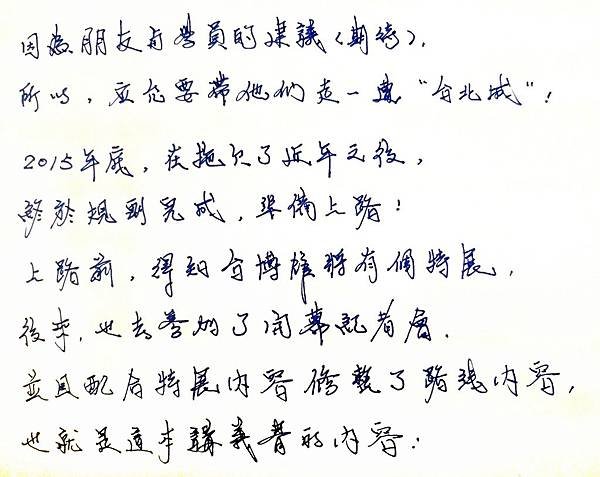 因為朋友與學員的建議(期待),
所以,立志要帶他們走一遍“台北城”!
2015年底,在拖欠了近年之後,
終於規劃完成,準備上路!
上路前,得知台博館將有個特展,
後來,也去參加了開幕記者會.
並且配合特展內容修整了路線內容,
也就是這本講義書的內容: